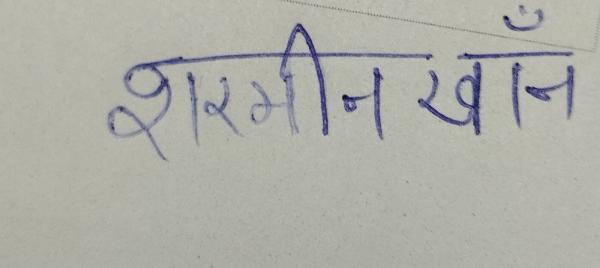 शरमीन खाँन